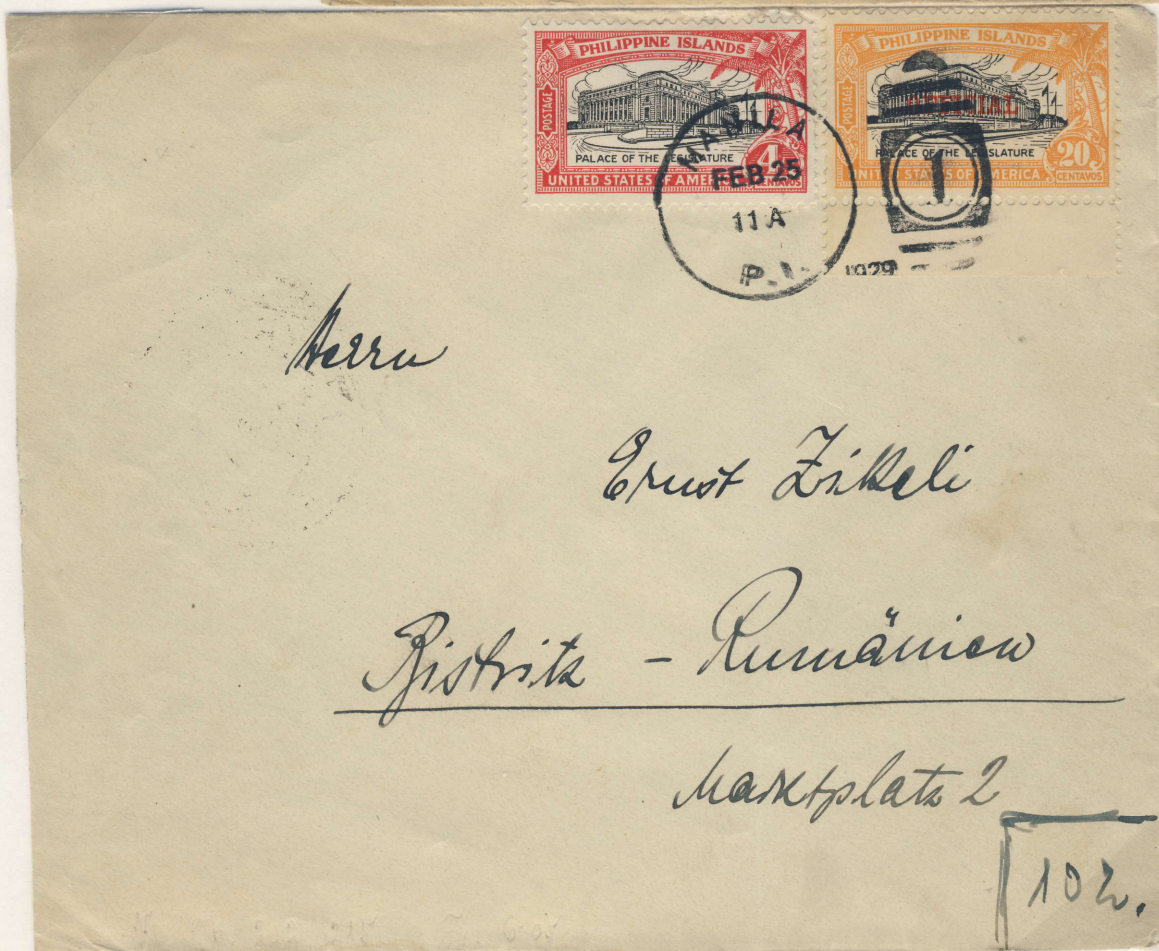 PHILIPPINE ISLANDS
POSTAGE
PALACE OF THE LEGISLATURE
4
CENTAVOS
UNITED STATES OF AMERICA
PHILIPPINE ISLANDS
POSTAGE
OFFICIAL
PALACE OF THE LEGISLATURE
20
CENTAVOS
UNITED STATES OF AMERICA
MANILA
FEB 25
11 A
P.I.
1929
1
Herrn
Ernst Zikeli
Bistritz - Rumänien
Marktplatz 2